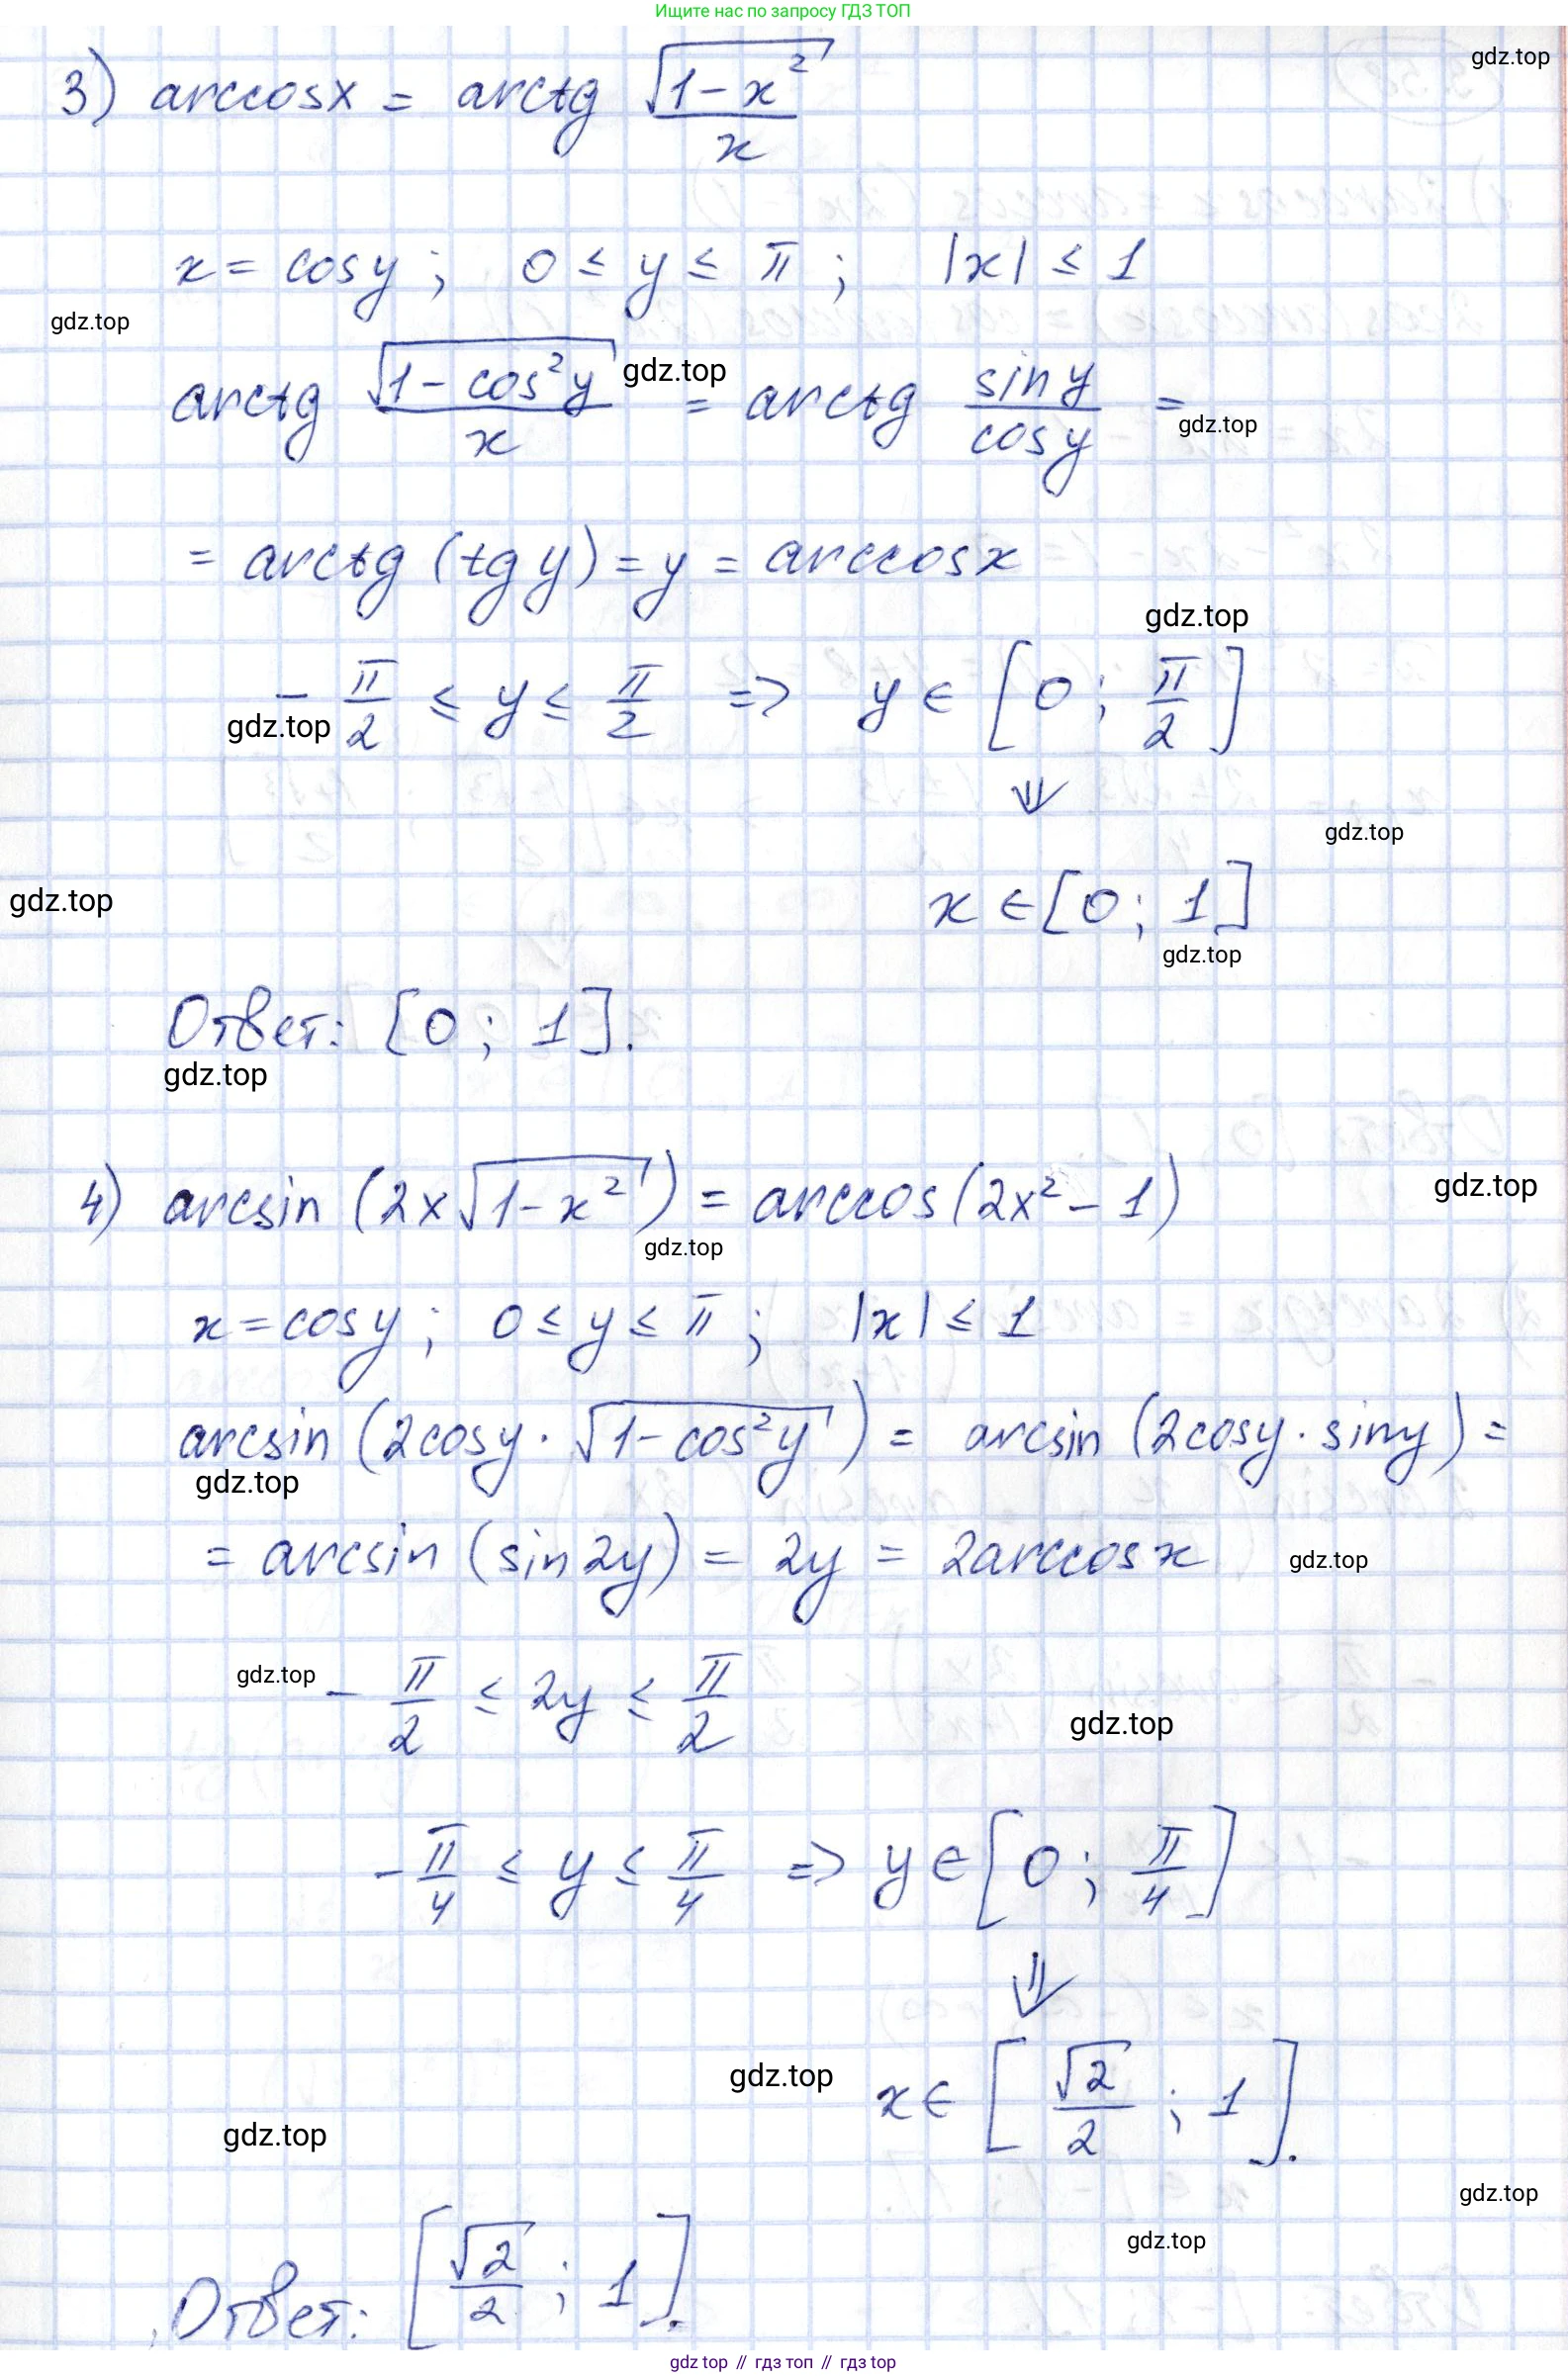 Ищите нас по запросу ГДЗ ТОП
gdz.top
3) arccosx = arctg √(1-x²)/x
x = cosy; 0 ≤ y ≤ π; |x| ≤ 1
gdz.top
arctg √(1-cos²y)/x = arctg siny/cosy =
gdz.top
gdz.top
= arctg (tgy) = y = arccosx
gdz.top
-π/2 ≤ y ≤ π/2 => y ∈ [0; π/2]
gdz.top
⇓
gdz.top
gdz.top
x ∈ [0; 1]
gdz.top
Ответ: [0; 1].
gdz.top
4) arcsin (2x√(1-x²)) = arccos(2x²-1)
gdz.top
gdz.top
x = cosy; 0 ≤ y ≤ π; |x| ≤ 1
arcsin (2cosy · √(1-cos²y)) = arcsin (2cosy · siny) =
gdz.top
= arcsin (sin2y) = 2y = 2arccosx
gdz.top
gdz.top
-π/2 ≤ 2y ≤ π/2
gdz.top
-π/4 ≤ y ≤ π/4 => y ∈ [0; π/4]
⇓
gdz.top
x ∈ [√2/2; 1].
gdz.top
gdz.top
gdz.top
Ответ: [√2/2; 1].
gdz top // гдз топ // гдз top